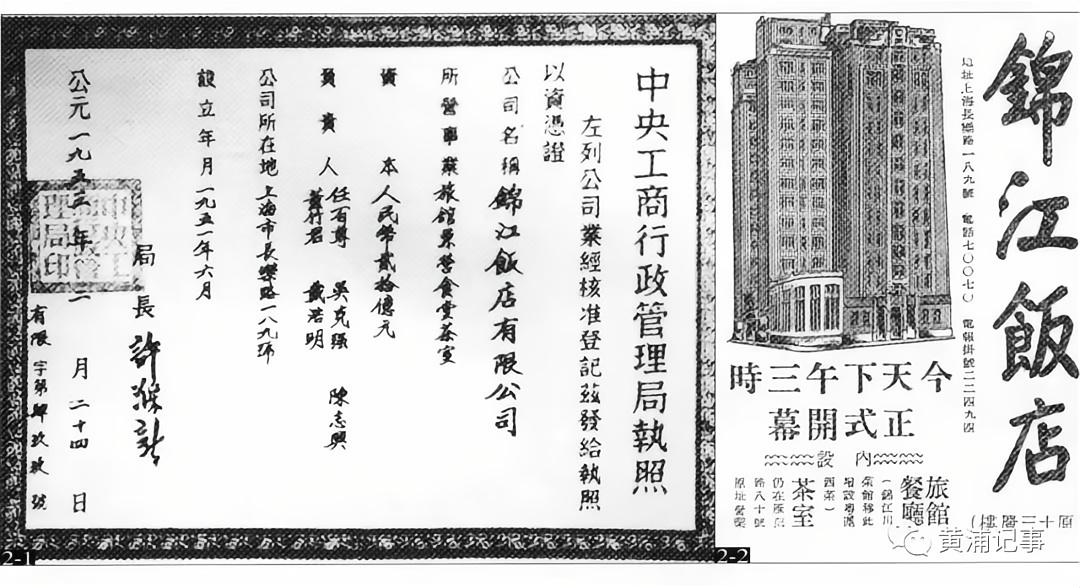 中央工商行政管理局執照
左列公司業經核准登記茲發給執照
以資憑證
公司名稱 錦江飯店有限公司
所營事業 旅館業兼營食堂茶室
資本 人民幣貳拾億元
負責人 任百尊 吳克强 陳志興
董竹君 戴浩明
公司所在地 上海市長樂路一八九號
設立年月 一九五一年六月
局長 許滌新
公元一九五三年 二月二十四日
有限字第肆玖玖號
2-1
錦江飯店
(原十三層樓)
地址上海長樂路一八九號 電話七〇〇七〇 電報掛號二二四九四
今天下午三時
正式開幕
內設
旅館
餐廳
(錦江川
菜館移此
增設
西菜)
茶室
仍在雁蕩
路八十號
原址營業
2-2
黄浦记事